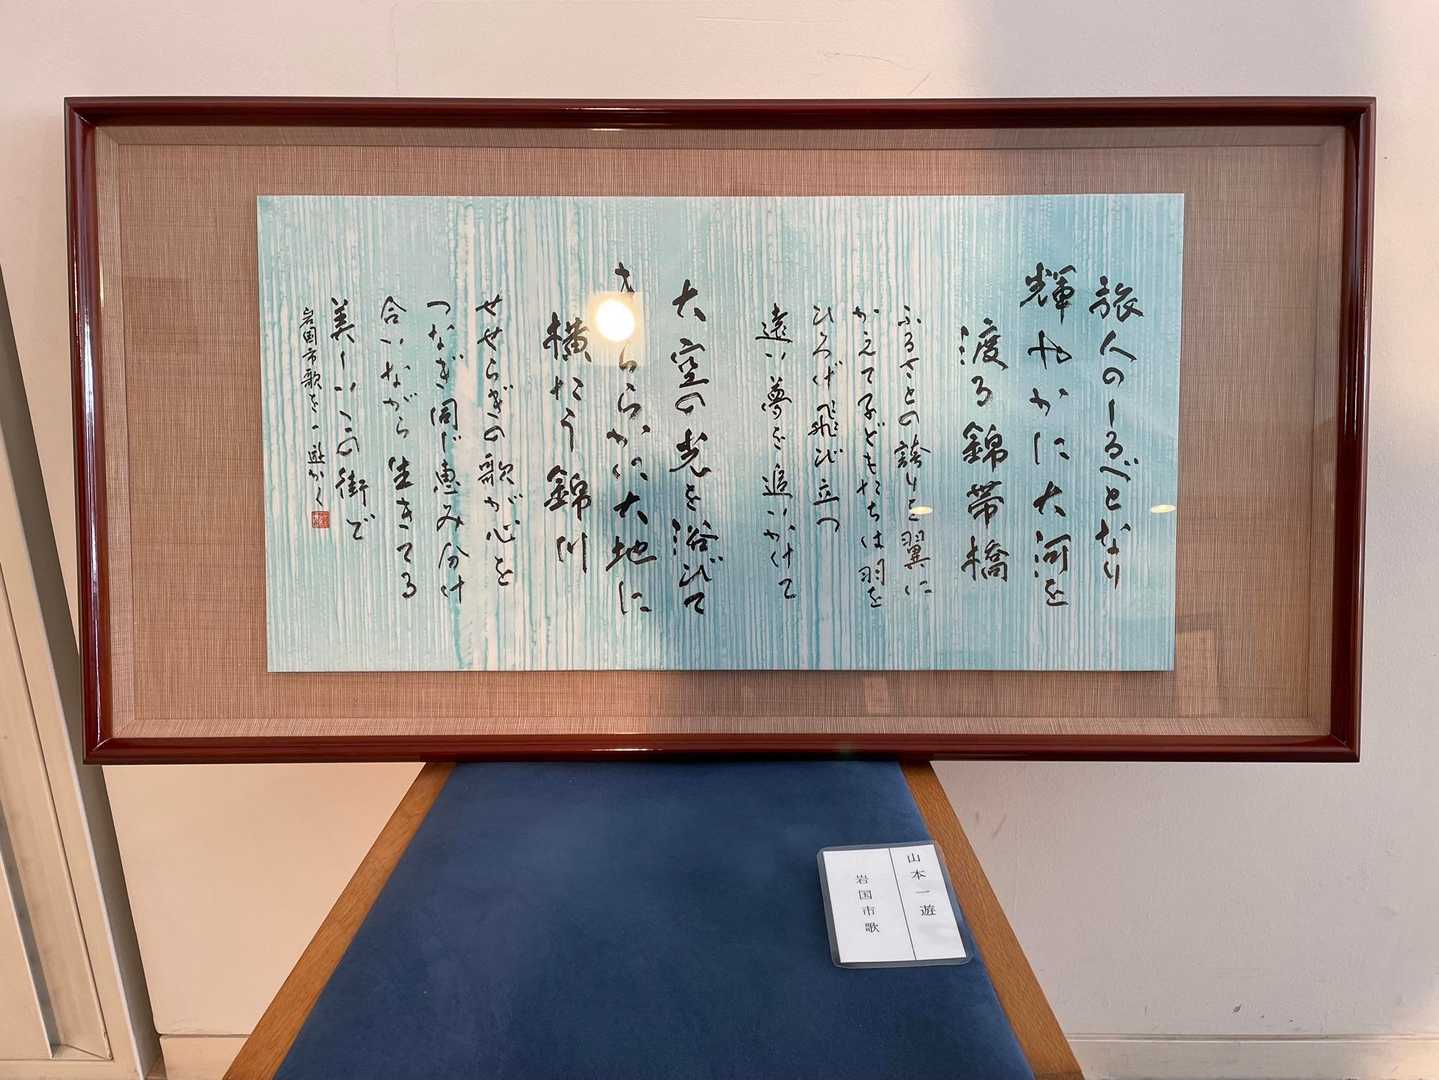 旅人のしるべとなり
輝やかに大河を
渡る錦帯橋
ふるさとの誇りを翼に
かえて子どもたちは羽を
ひろげ飛び立つ
遠い夢を追いかけて
大空の光を浴びて
らかに大地に
横たう錦川
せせらぎの歌が心を
つなぎ同じ恵み分け
合いながら生きてる
美しいこの街で
岩国市歌を一遊かく
山本一遊
岩国市歌